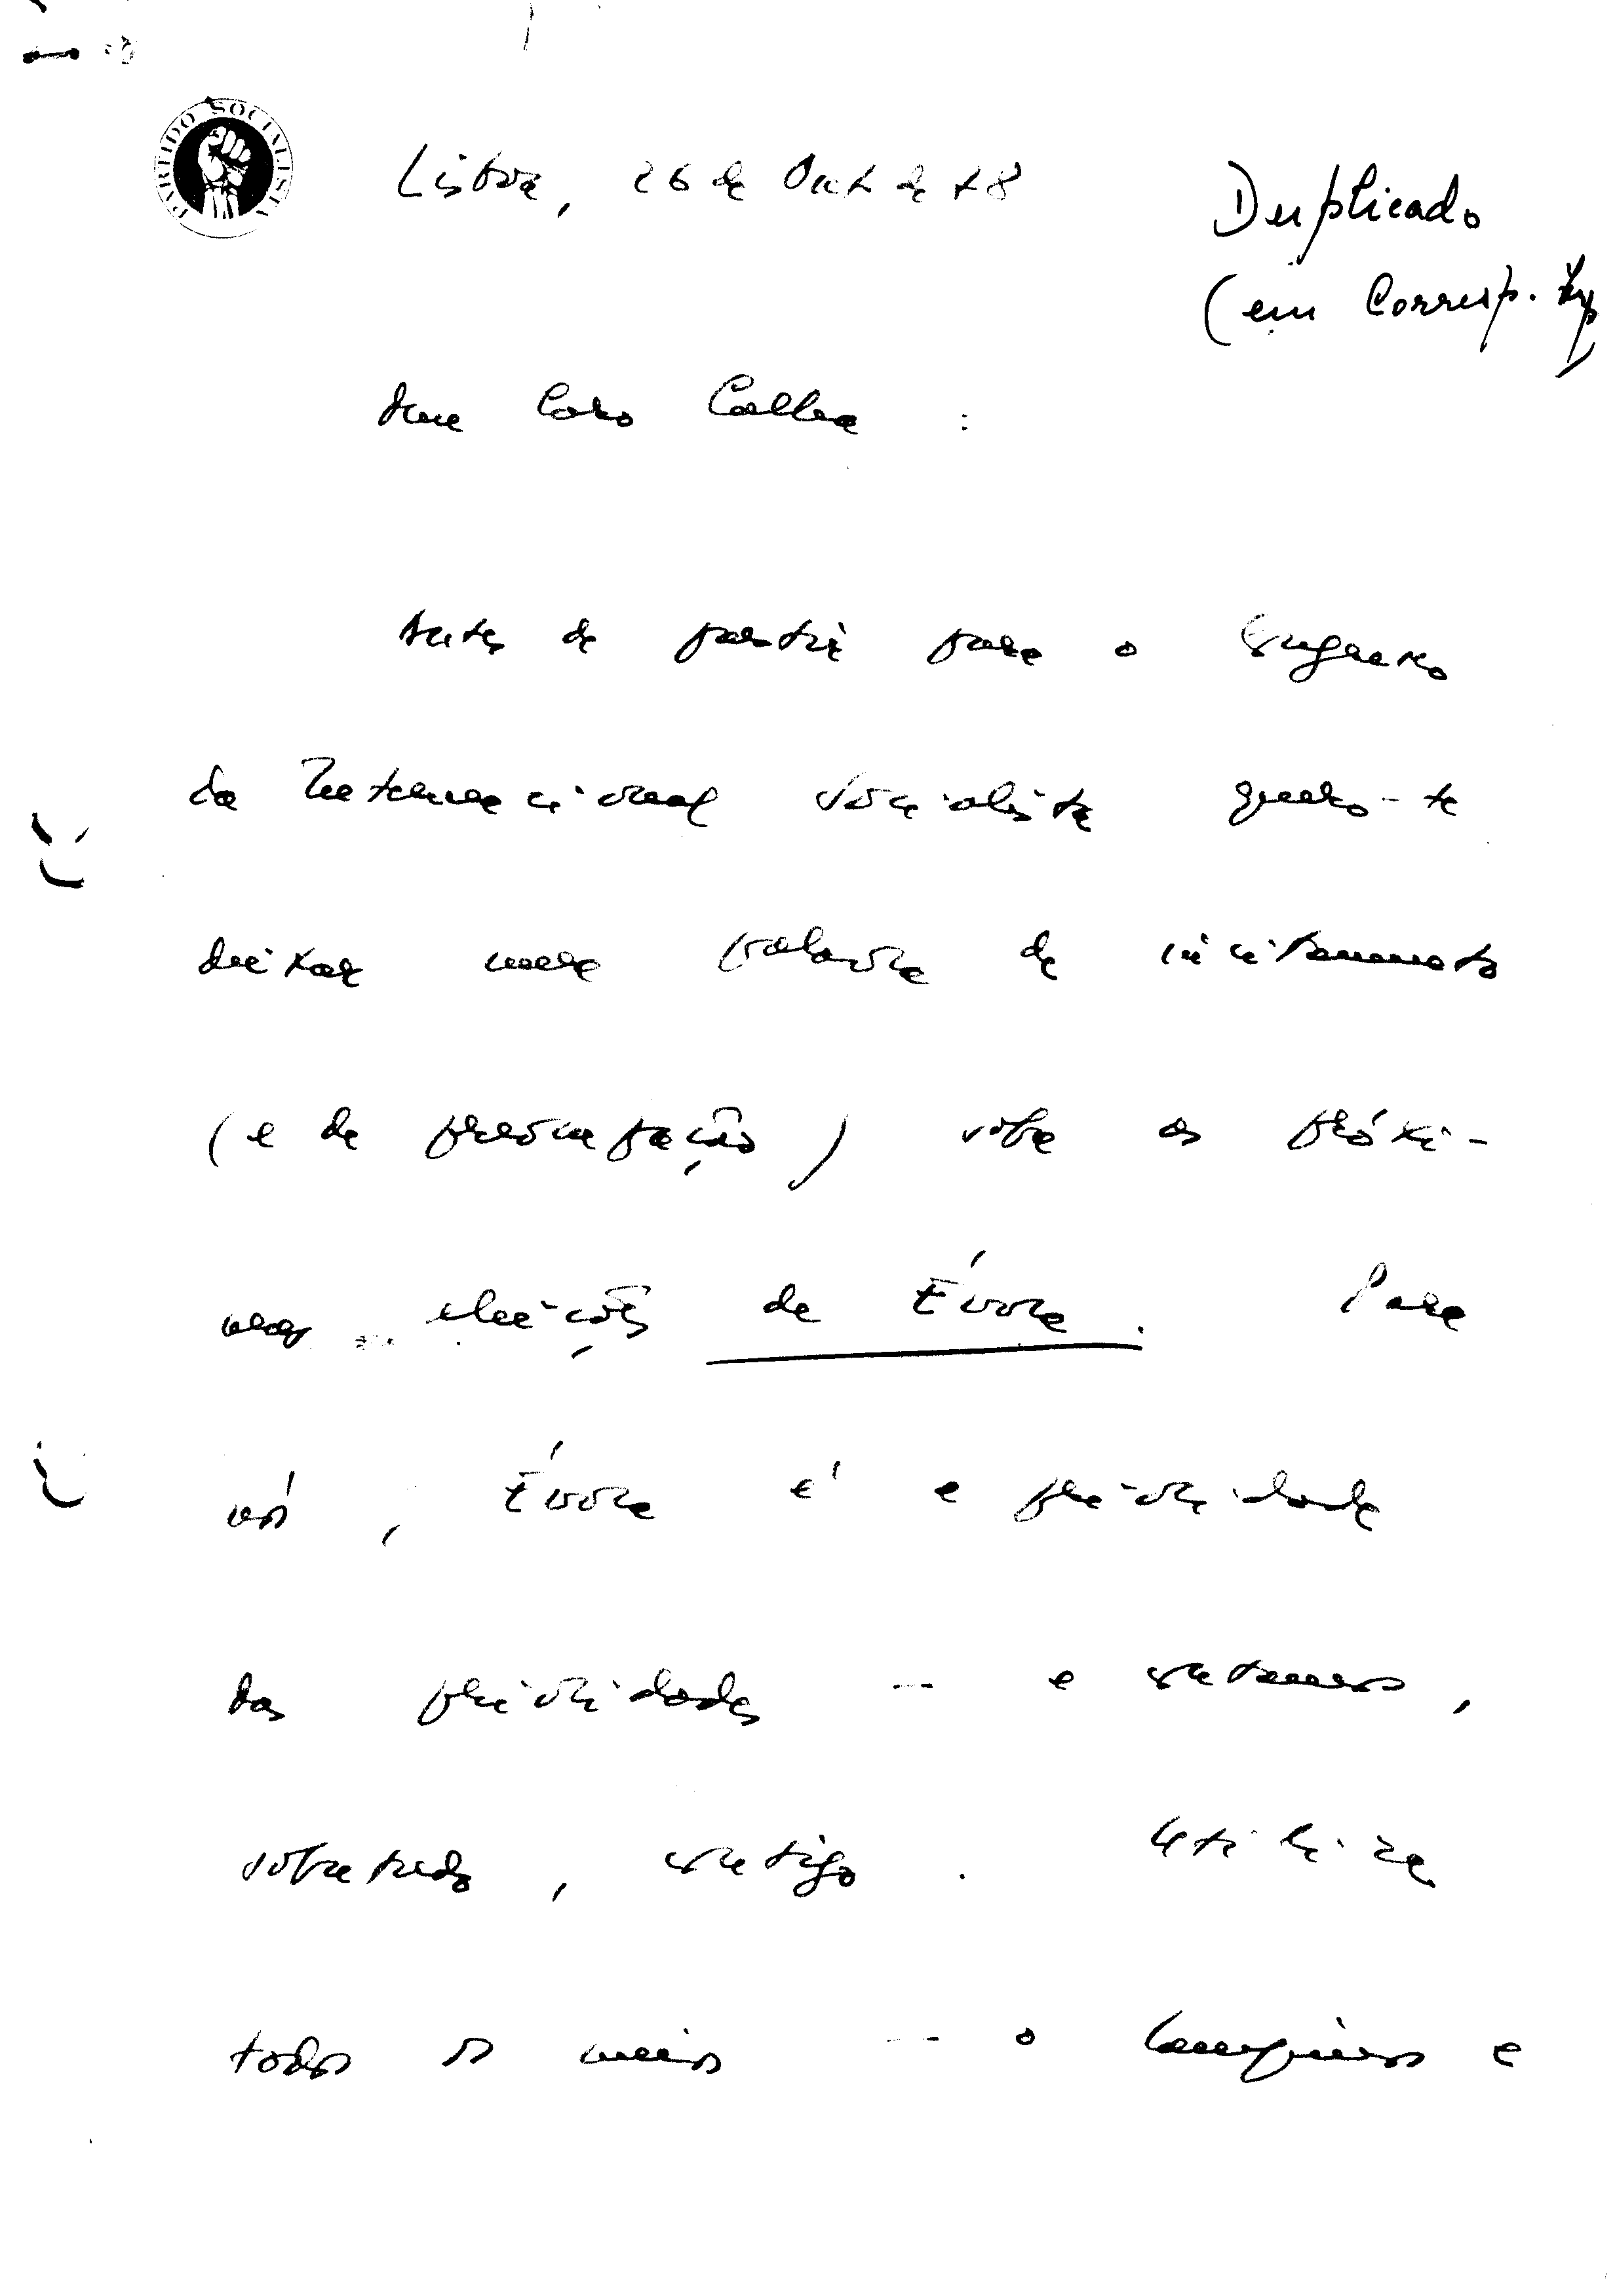 PARTIDO SOCIALISTA
Lisboa, 26 de Out de 78
Duplicado
(em Corresp.
Meu Caro
Antes de partir para o Congresso
da Internacional Socialista quero-te
deixar uma palavra de incitamento
(e de preocupação) sobre as próxi-
mas eleições de Évora. Para
nós, Évora é a prioridade
das prioridades — e contamos,
sobretudo, contigo. Utiliza
todos os meios — o Campinos e